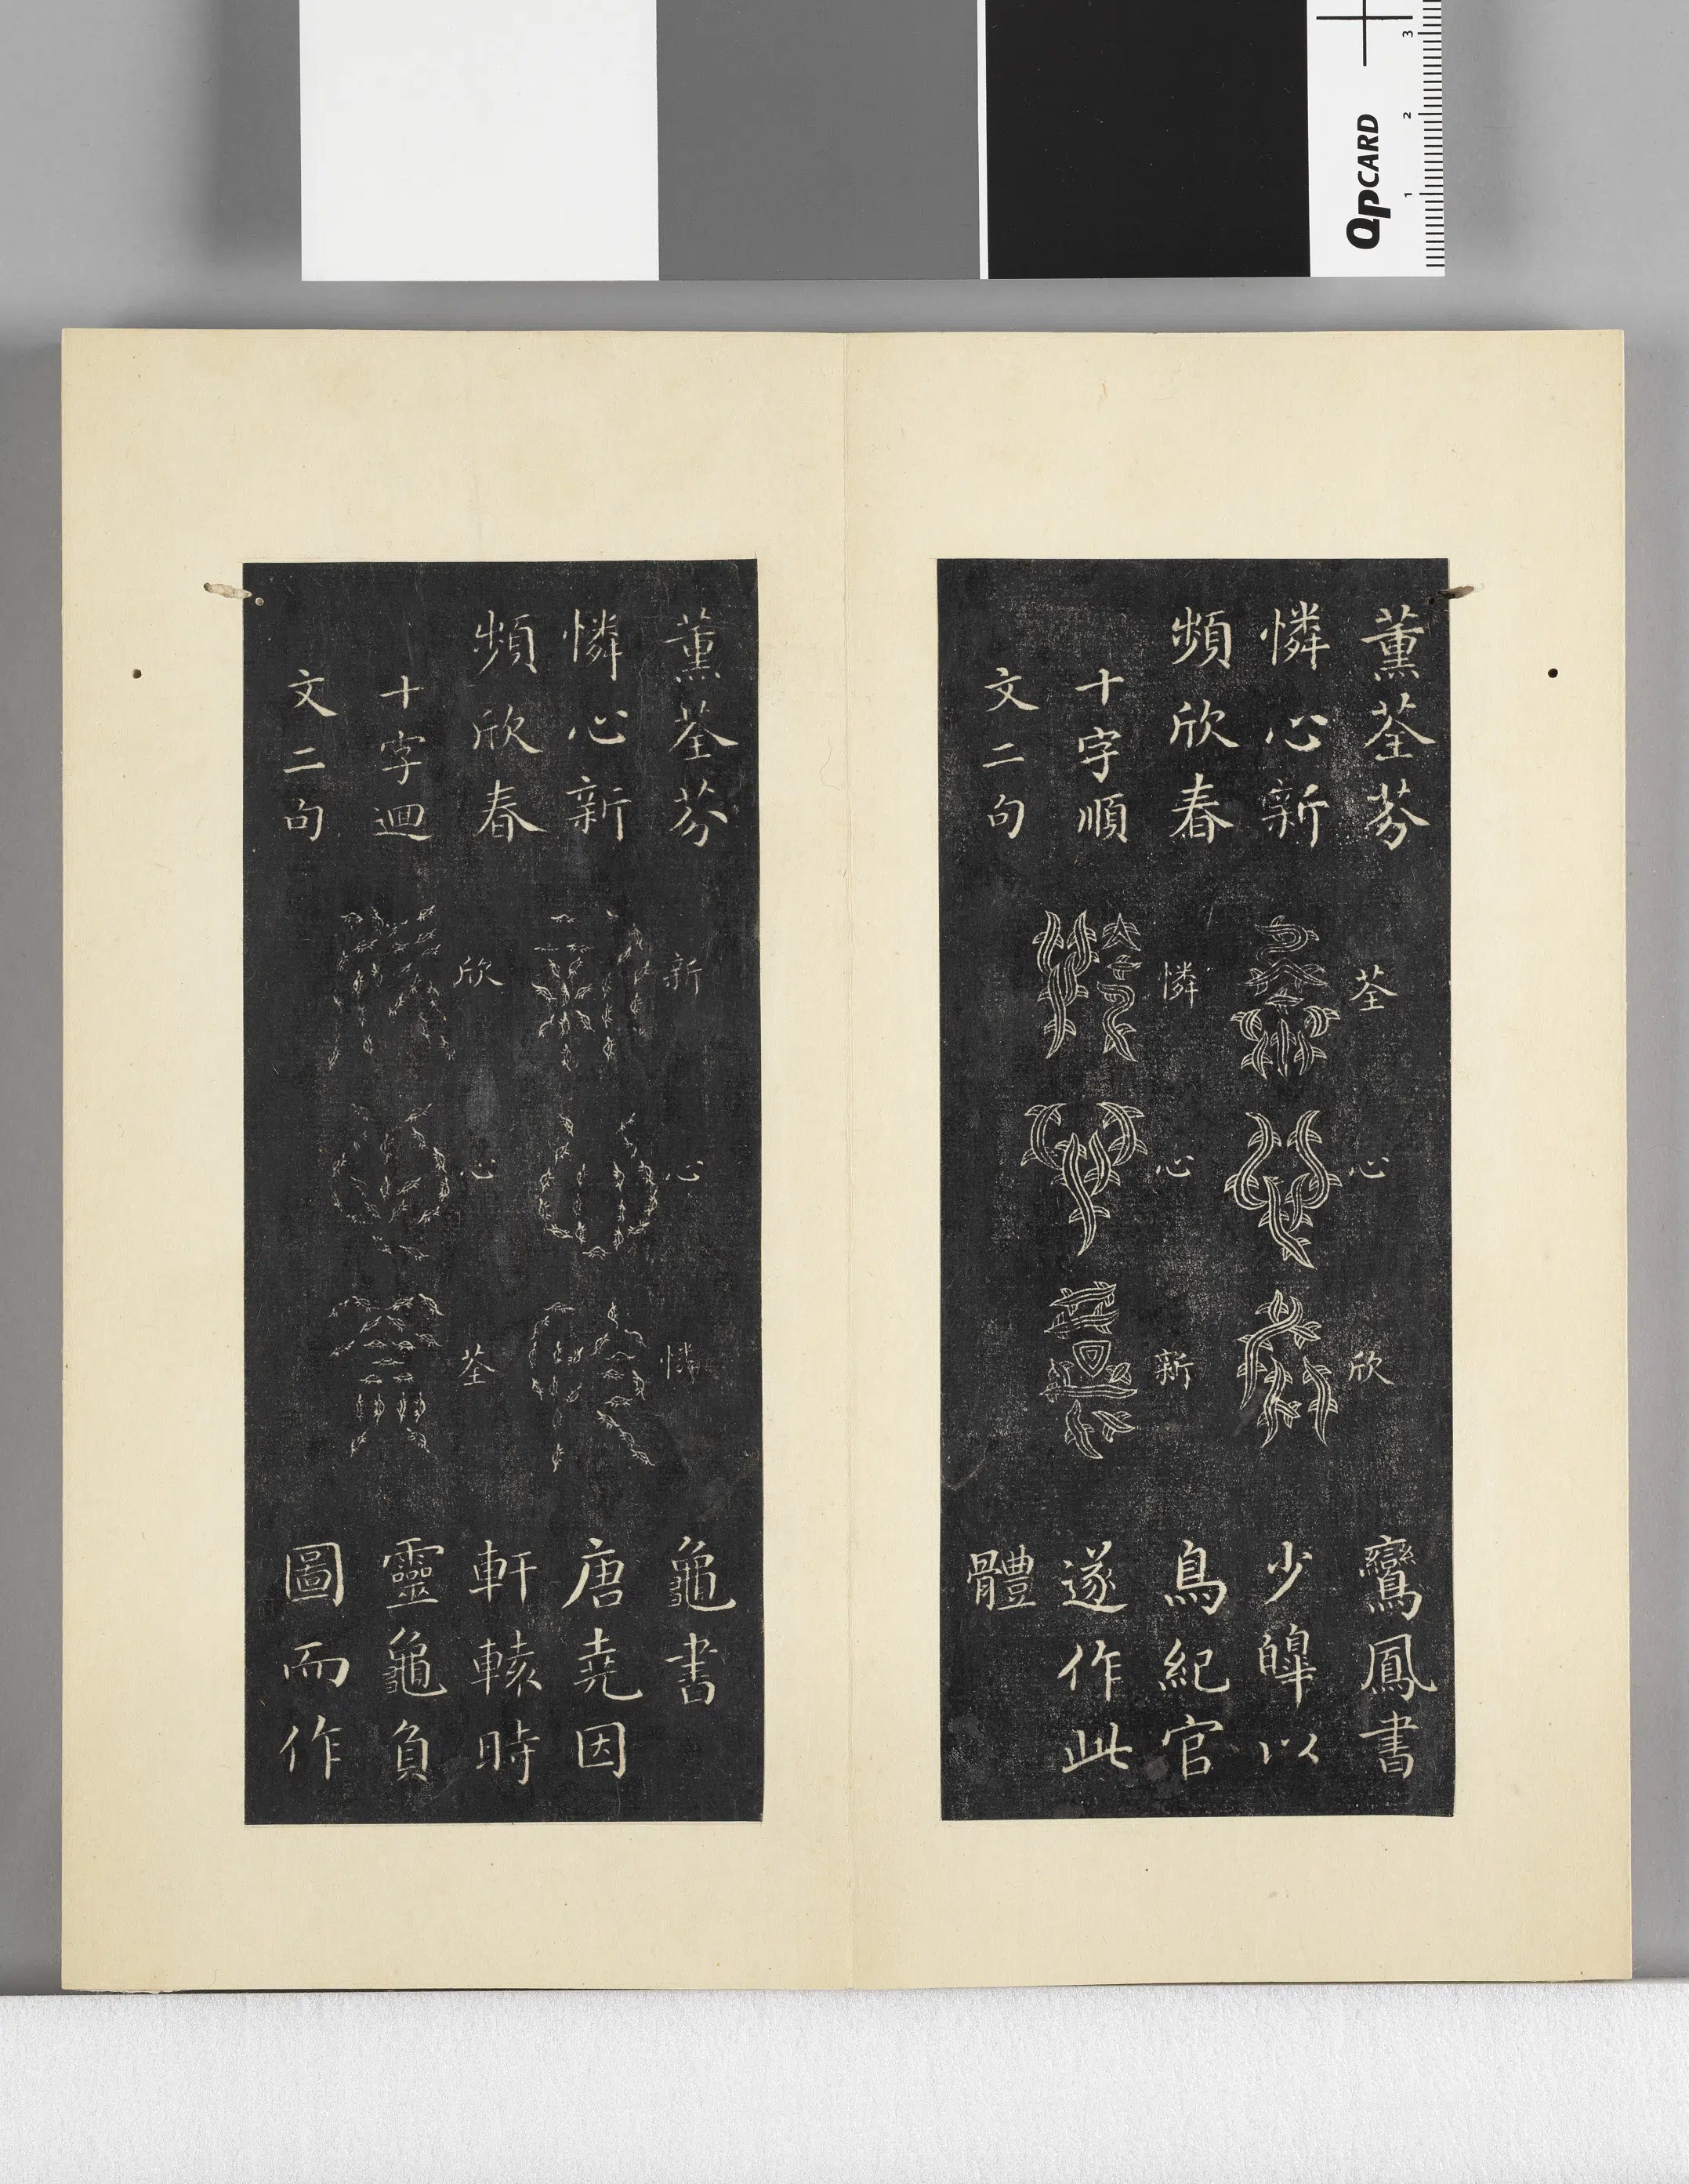 QPCARD
1 2 3
薰荃芬
憐心新
頻欣春
十字順
文二句
荃
心
欣
憐
心
新
鸞鳳書
少皞以
鳥紀官
遂作此
體
薰荃芬
憐心新
頻欣春
十字迴
文二句
新
心
憐
欣
心
荃
龜書
唐堯因
軒轅時
靈龜負
圖而作